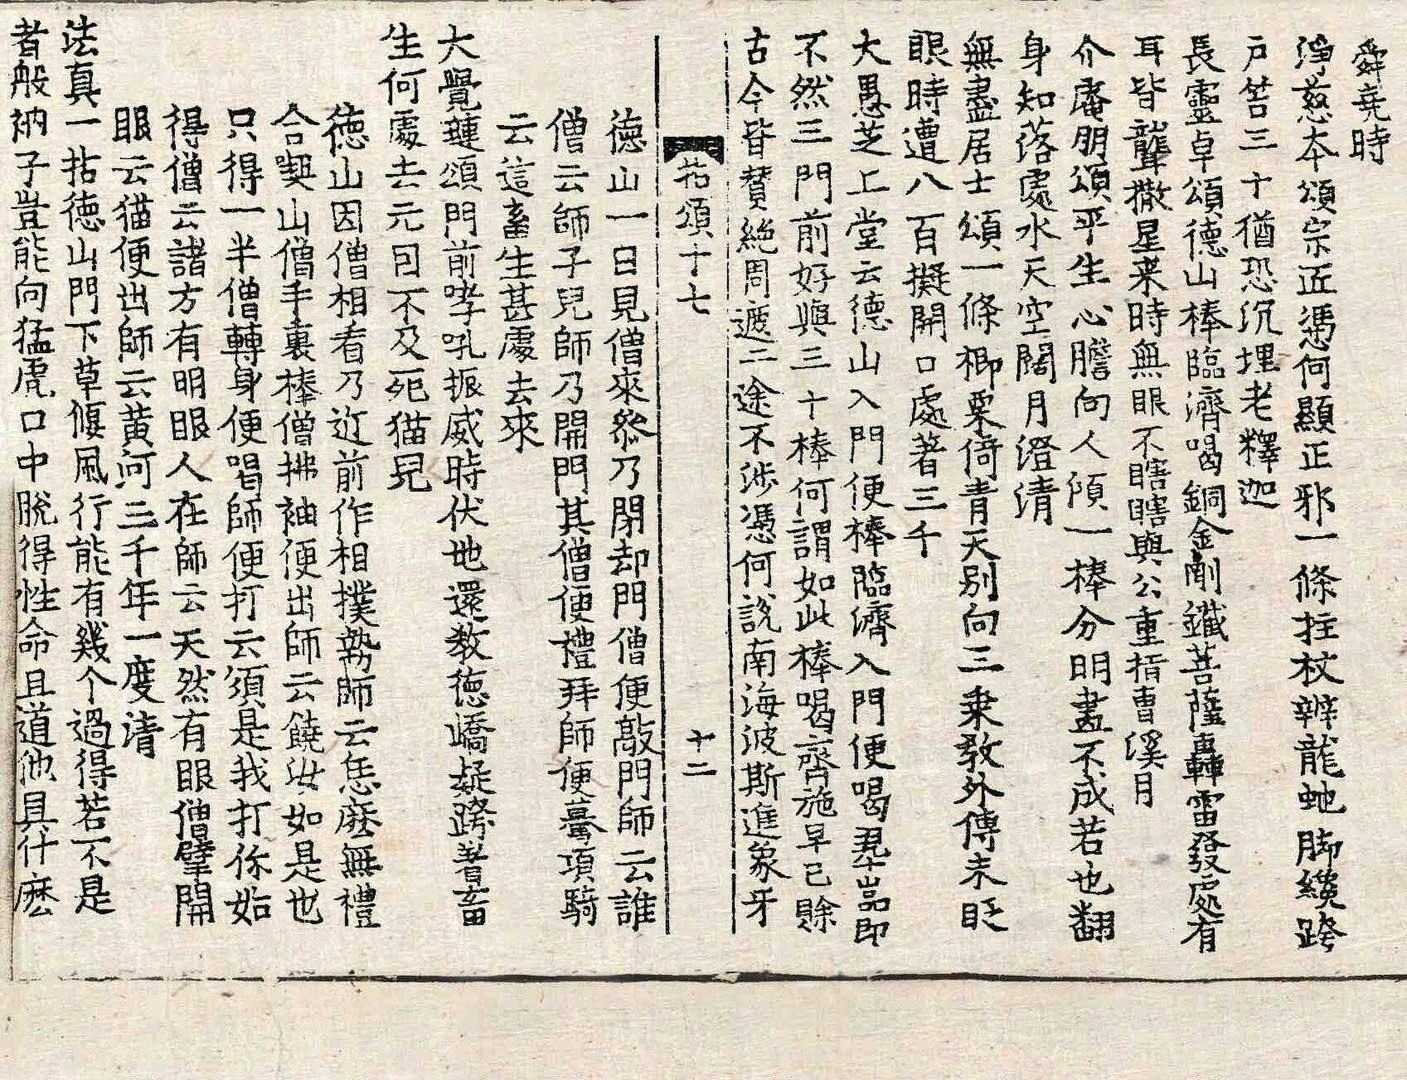 舜堯時
淨慈本頌宗匠憑何顯正邪一條拄杖辨龍虵脚纔跨
戶筈三十猶恐沉埋老釋迦
長靈卓頌德山棒臨濟喝銅金剛鐵菩薩轟雷發處有
耳皆聾撒星来時無眼不瞎瞎與公重指曹溪月
介庵朋頌平生心膽向人傾一棒分明盡不成若也翻
身知落處水天空闊月澄清
無盡居士頌一條楖栗倚青天別向三乗教外傳未眨
眼時遭八百擬開口處著三千
大愚芝上堂云德山入門便棒臨濟入門便喝翠嵓即
不然三門前好與三十棒何謂如此棒喝齊施早已賒
古今皆贊絶周遮二途不涉憑何說南海波斯進象牙
拈頌十七
十二
德山一日見僧來叅乃閉却門僧便敲門師云誰
僧云師子兒師乃開門其僧便禮拜師便驀項騎
云這畜生甚處去來
大覺璉頌門前哮吼振威時伏地還教德嶠疑跨著畜
生何處去元因不及死猫兒
德山因僧相看乃近前作相撲勢師云恁麽無禮
合喫山僧手裏棒僧拂袖便出師云饒汝如是也
只得一半僧轉身便喝師便打云須是我打你始
得僧云諸方有明眼人在師云天然有眼僧擘開
眼云猫便出師云黄河三千年一度清
法真一拈德山門下草偃風行能有幾个過得若不是
者般衲子豈能向猛虎口中脫得性命且道他具什麽